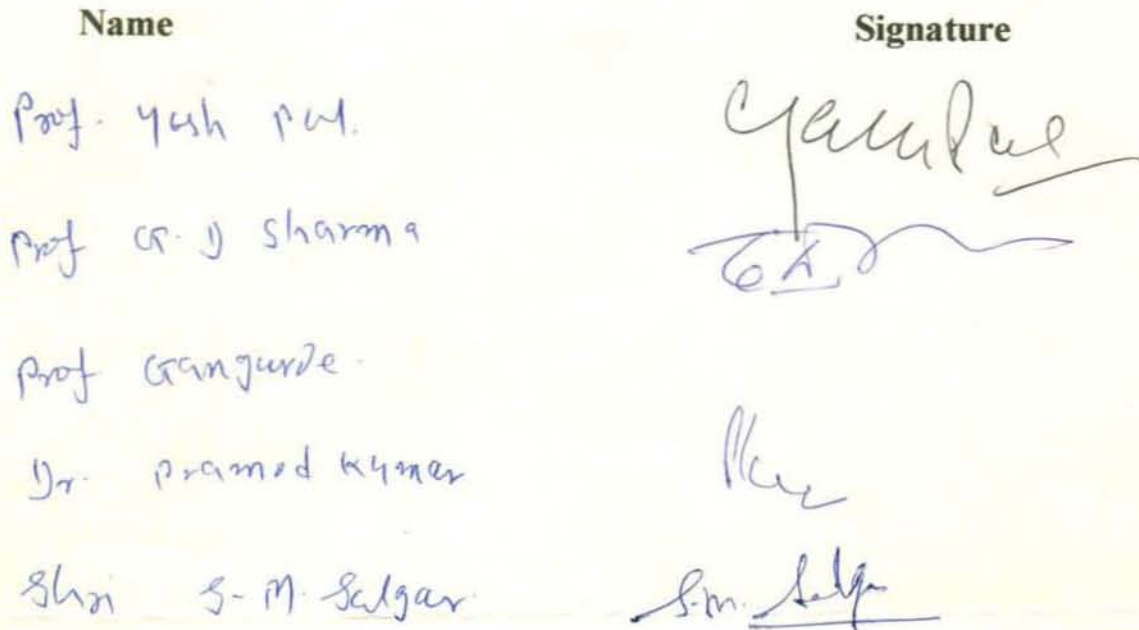 Name Signature
Prof. Yash Pal. Yash Pal
Prof G. D Sharma
Prof Gangurde.
Dr. Pramod Kumar
Shri S. M. Salgar S.m. Salgar